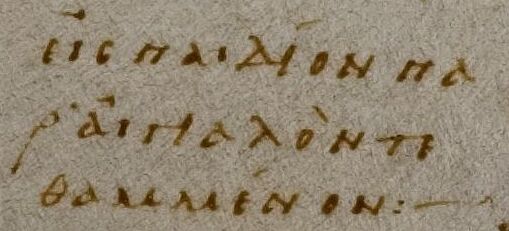 ἐις παιδίον πα
ρ' ἀιγιαλὸν τε
θαμμένον:—